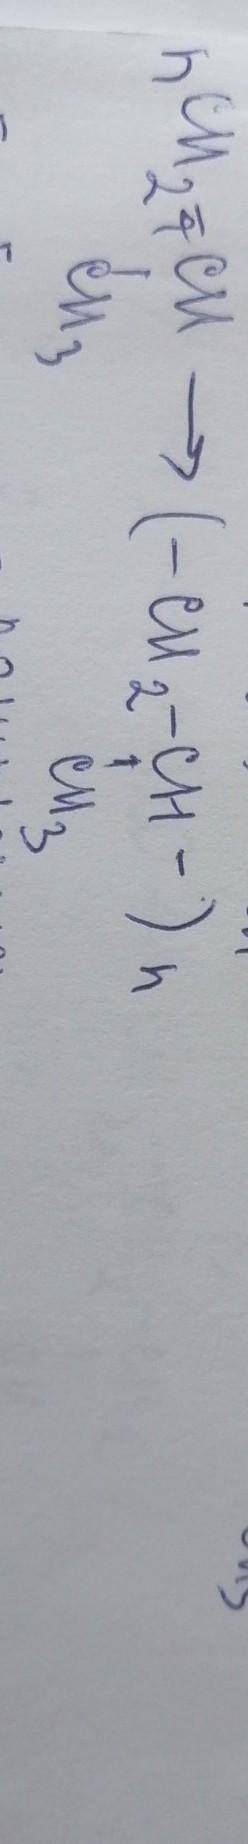 nCH2=CH → (-CH2-CH-)n
CH3 CH3